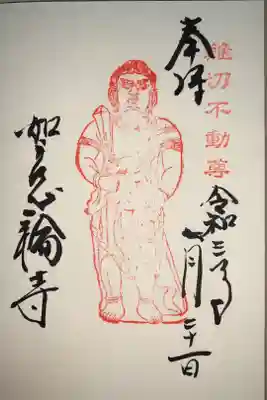 難切不動尊
奉拝
令和三年
月二十一日
如意輪寺